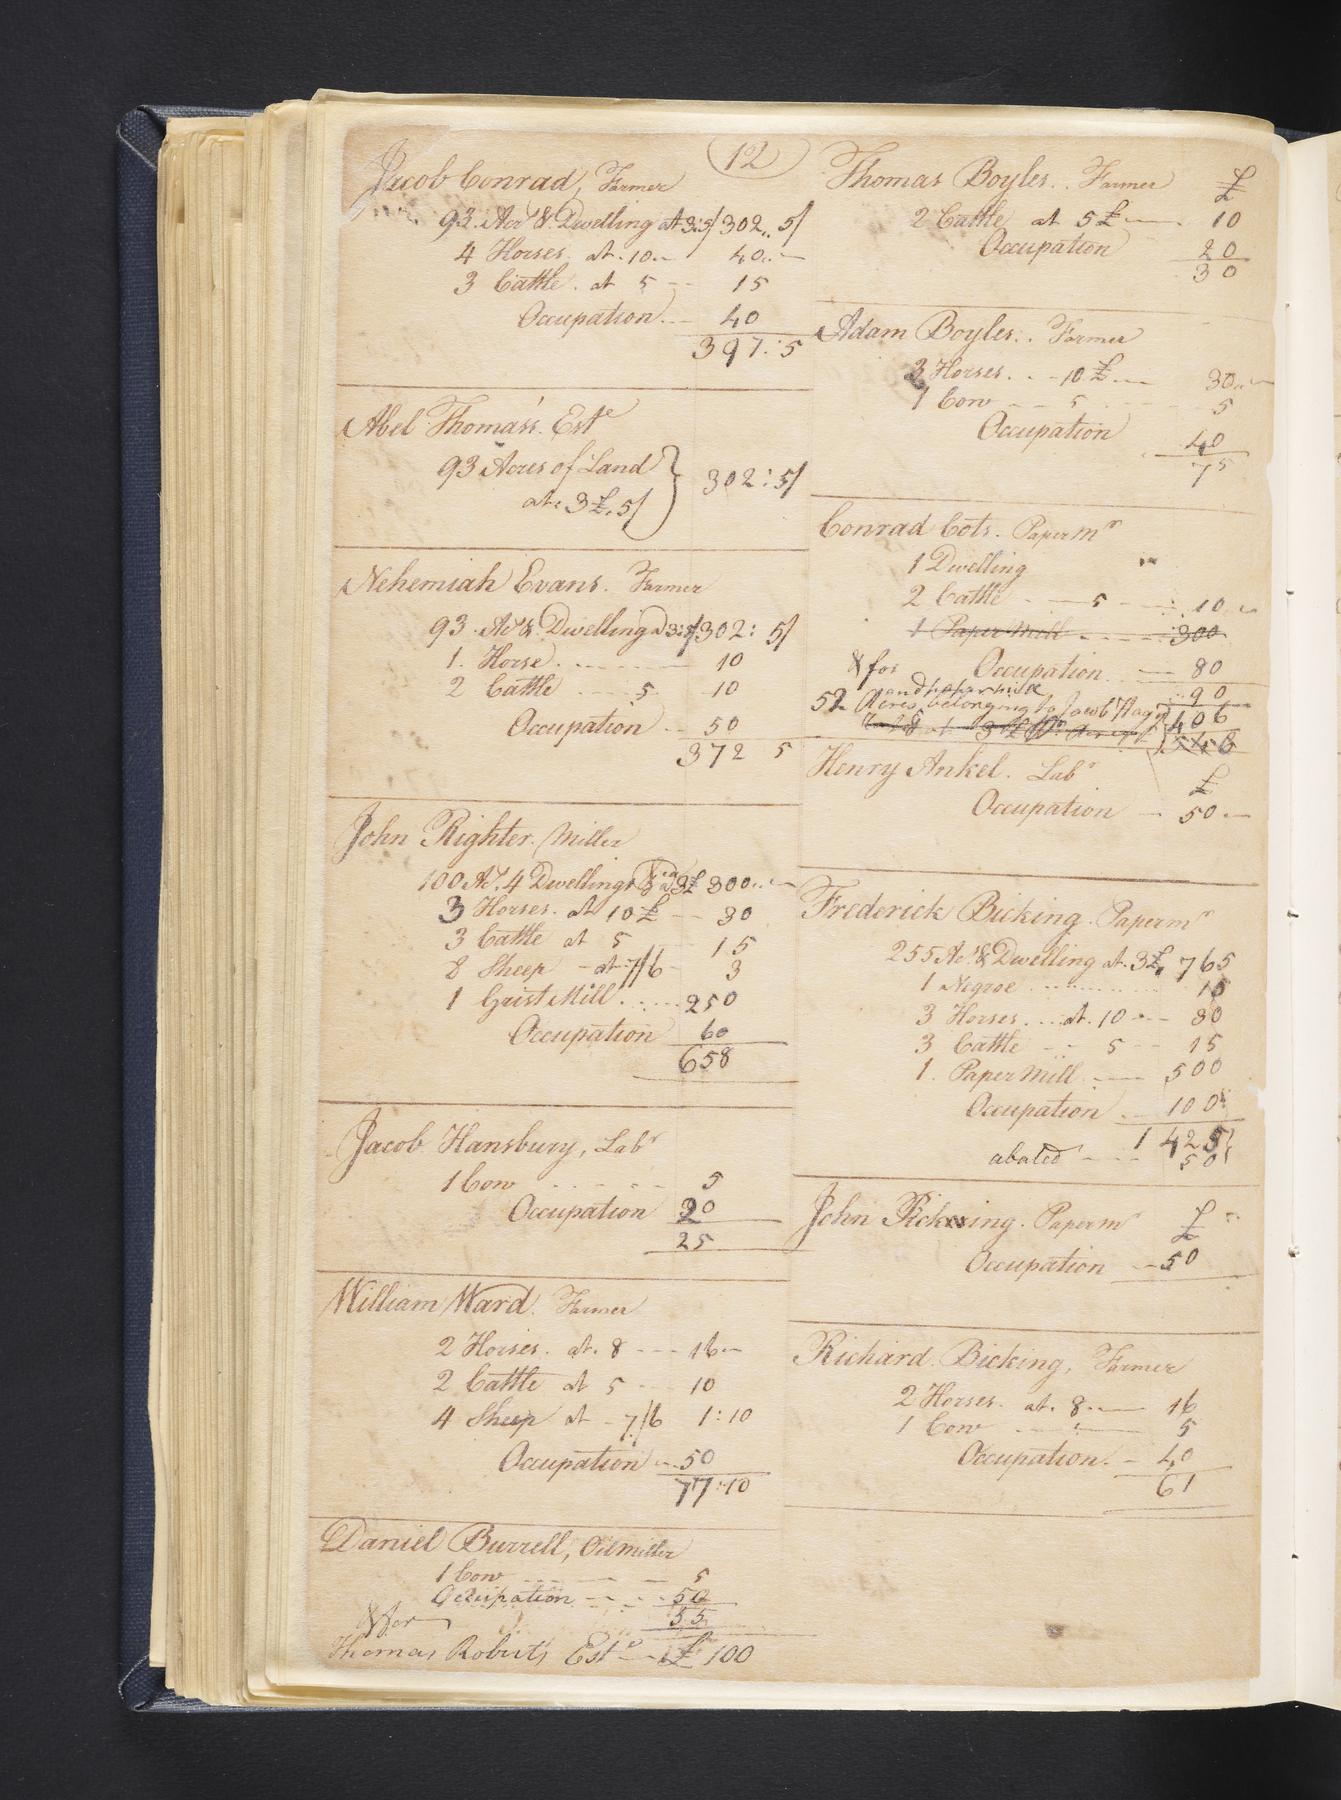 12
Jacob Conrad, Farmer
93 Acr & Dwelling at 3:5/ 302,, 5/
4 Horses at 10 40
3 Cattle at 5 15
Occupation 40
397:5
Abel Thomas's Este
93 Acres of Land
at 3£,5/ 302:5/
Nehemiah Evans. Farmer
93 Acrs & Dwelling a 3:5/ 302: 5/
1 Horse 10
2 Cattle 5 10
Occupation 50
372 5
John Righter. Miller
100 Ac. 4 Dwellings 3£ 300
3 Horses at 10£ 30
3 Cattle at 5 15
8 Sheep at 7/6 3
1 Grist Mill 250
Occupation 60
658
Jacob Hansbury, Labr
1 Cow 5
Occupation 20
25
William Ward. Farmer
2 Horses at 8 16
2 Cattle at 5 10
4 Sheep at 7/6 1:10
Occupation 50
77:10
Daniel Burrell, Oilmiller
1 Cow 5
Occupation 50
55
& for
Thomas Robert's Este £ 100
Thomas Boyles. Farmer £
2 Cattle at 5£ 10
Occupation 20
30
Adam Boyles. Farmer
3 Horses 10£ 30
1 Cow 5 5
Occupation 40
75
Conrad Cots. Paper mr
1 Dwelling
2 Cattle 5 10
1 Paper Mill 300
Occupation 80
& for 90
and paper mill
52 Acres belonging to Jacob Hagy 406
Henry Ankel. Labr £
Occupation 50
Frederick Bicking. Paper mr
255 Ac. & Dwelling at 3£, 765
1 Negroe 15
3 Horses at 10 30
3 Cattle 5 15
1 Paper Mill 500
Occupation 100
1425
abated 50
John Pickering. Paper mr £
Occupation 50
Richard Bicking, Farmer
2 Horses at 8 16
1 Cow 5
Occupation 40
61